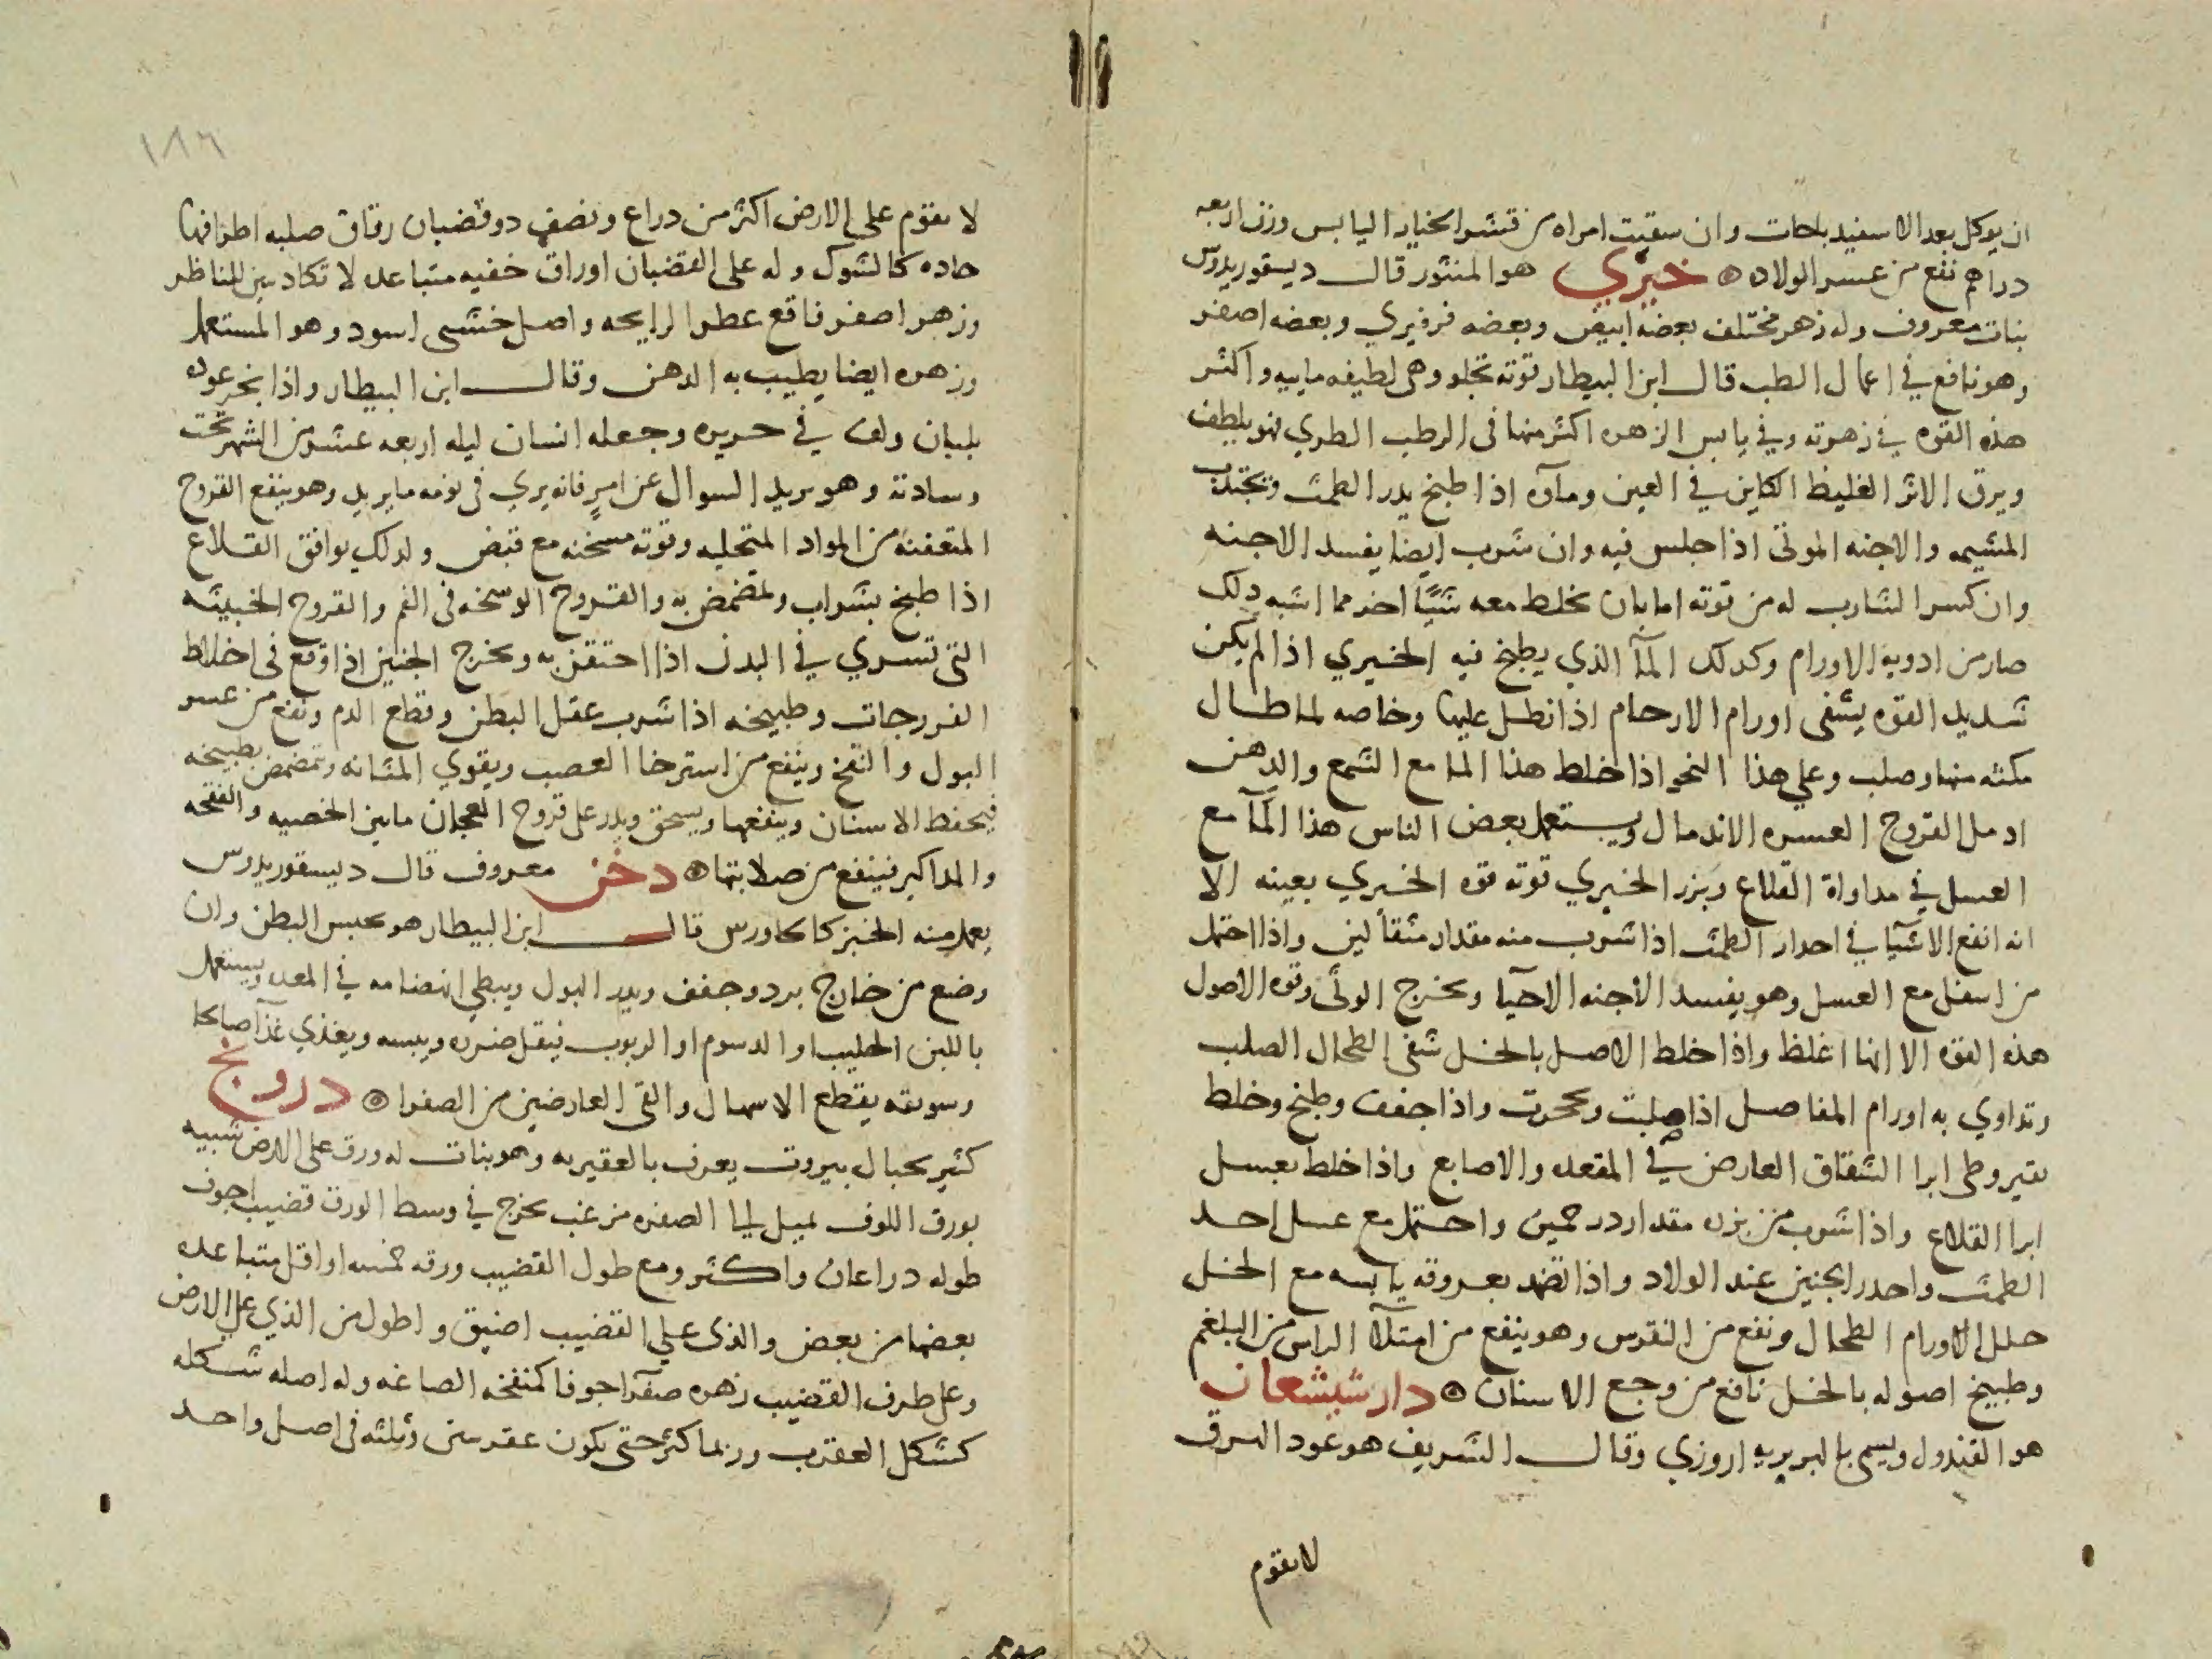 ان يوكل بعد الاسفيدباجات وان سقيت امراه من قشر الخيار اليابس وزن اربعه
دراهم نفع من عسر الولاده ۞ خيري هو المنثور قال ديسقوريدوس
نبات معروف وله زهر مختلف بعضه ابيض وبعضه فرفيري وبعضه اصفر
وهو نافع في اعمال الطب قال ابن البيطار قوته تجلو وهي لطيفه ماييه واكثر
هذه القوه في زهرته وفي يابس الزهره اكثر منها في الرطب الطري فهو يلطف
ويرق الاثر الغليظ الكاين في العين ومآوه اذا طبخ يدر الطمث ويجتذب
المشيمه والاجنه الموتى اذا جلس فيه وان شرب ايضا يفسد الاجنه
وان كسر الشارب له من قوته اما بان يخلط معه شيًا اخر مما اشبه ذلك
صار من ادوية الاورام وكذلك المآ الذي يطبخ فيه الخيري اذا لم يكن
شديد القوه يشفى اورام الارحام اذا نطل عليها وخاصه لما طال
مكثه منها وصلب وعلى هذا النحو اذا خلط هذا الما مع الشمع والدهن
ادمل القروح العسره الاندمال ويستعمل بعض الناس هذا المآ مع
العسل في مداواة القلاع وبزر الخيري قوته قوه الخيري بعينه الا
انه انفع الاشيا في احدار الطمث اذا شرب منه مقدار مثقالين واذا احتمل
من اسفل مع العسل وهو يفسد الاجنه الاحيا ويخرج الموتى وقوه الاصول
هذه القوه الا انها اغلظ واذا خلط الاصل بالخل شفى الطحال الصلب
وتداوي به اورام المفاصل اذا صلبت وتحجرت واذا جففت وطبخ وخلط
بقيروطى ابرا الشقاق العارض في المقعده والاصابع واذا خلط بعسل
ابرا القلاع واذا شرب من بزره مقدار درخمين واحتمل مع عسل احد
الطمث واحدر الجنين عند الولاد واذا تضمد بعروقه يابسه مع الخل
حلل الاورام الطحال ونفع من النقرس وهو ينفع من امتلآ الراس من البلغم
وطبيخ اصوله بالخل نافع من وجع الاسنان ۞ دار شيشعان
هو القندول ويسمى بالبربريه اروزي وقال الشريف هو عود البرق
لا يقوم
١٨٦
لا يقوم على الارض اكثر من دراع ونصف ذو قضبان رقاق صلبه اطرافها
حاده كالشوك وله على القضبان اوراق خفيه متباعده لا تكاد تبين للناظر
وزهر اصفر فاقع عطر الرايحه واصل خشبى اسود وهو المستعمل
وزهره ايضا يطيب به الدهن وقال ابن البيطار واذا بخر عوده
بلبان ولف في حريره وجعله انسان ليله اربعه عشر من الشهر تحت
وسادته وهو يريد السوال عن امرٍ فانه يري في نومه ما يريد وهو ينفع القروح
المتعفنه من المواد المتحلبه وقوته مسخنه مع قبض ولدلك يوافق القلاع
اذا طبخ بشراب وتمضمض به والقروح الوسخه في الفم والقروح الخبيثه
التي تسري في البدن اذا احتقن به ويخرج الجنين اذا وقع في اخلاط
الفررجات وطبيخه اذا شرب عقل البطن وقطع الدم ونفع من عسر
البول والنفخ وينفع من استرخا العصب ويقوي المثانه وتمضمض بطبيخه
فيحفظ الاسنان وينفعها ويسحق ويذر على قروح العجان ما بين الخصيه والفقحه
والمداكير فينفع من صلابتها ۞ دخن معروف قال ديسقوريدوس
يعمل منه الخبز كالجاورس قال ابن البيطار هو يحبس البطن وان
وضع من خارج برد وجفف ويدر البول ويبطي انهضامه في المعده ويستعمل
باللبن الحليب او الدسوم او الربوب فيقل ضرره ويبسه ويغذي غذآ صالحا
وسويقه يقطع الاسهال والقى العارضين من الصفرا ۞ درونج
كثير بجبال بيروت يعرف بالعقيربه وهو نبات له ورق على الارض شبيه
بورق اللوف يميل الى الصفره مزغب يخرج في وسط الورق قضيب اجوف
طوله دراعان واكثر ومع طول القضيب ورقه خمسه او اقل متباعده
بعضها من بعض والذى على القضيب اضيق واطول من الذي على الارض
وعلى طرف القضيب زهره صفرا جوفا كمنفخه الصاغه وله اصله شكله
كشكل العقرب وربما كثر حتى يكون عقربتين وثلثه في اصل واحد